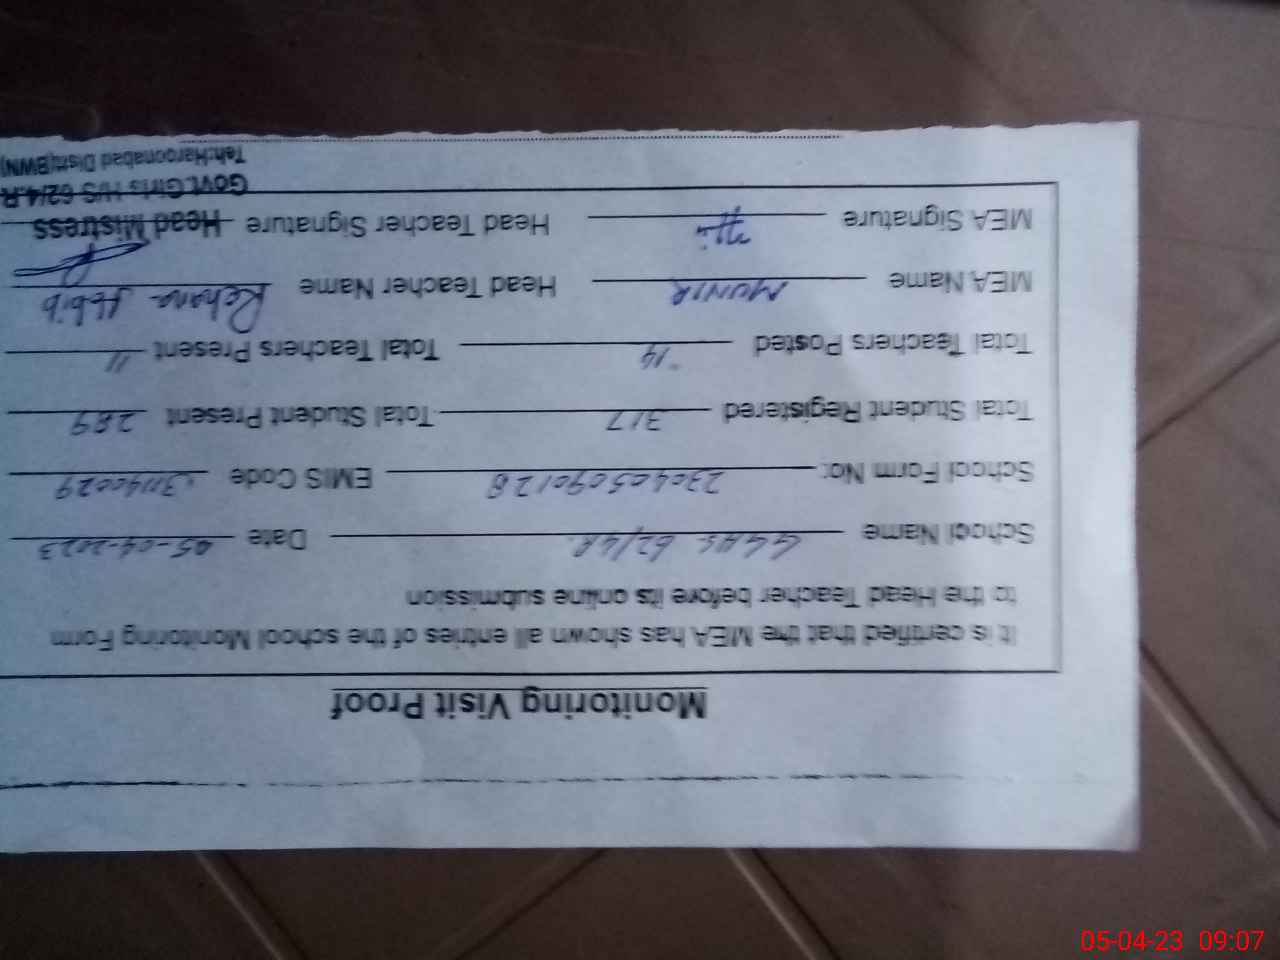 Monitoring Visit Proof
It is certified that the MEA has shown all entries of the school Monitoring Form
to the Head Teacher before its online submission
School Name GGHS 62/4R. Date 05-04-2023
School Form No: 23040509012B EMIS Code 31140029
Total Student Registered 317 Total Student Present 289
Total Teachers Posted 14 Total Teachers Present 11
MEA Name MUNIR Head Teacher Name Rehana Habib
MEA Signature Head Teacher Signature Head Mistress
Govt.Girls H/S 62/4.R
Teh:Haroonabad Distt(BWN)
05-04-23 09:07